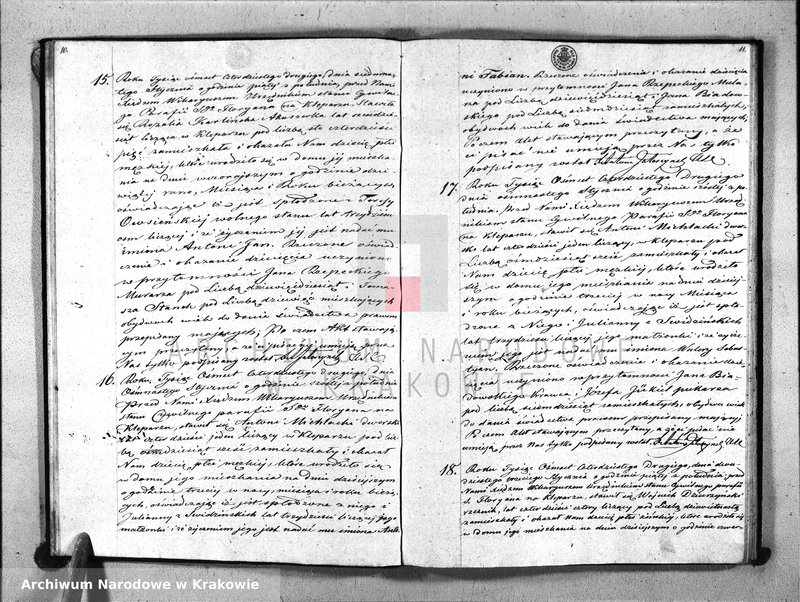 10.
15. Roku Tysiąc ośmset czterdziestego drugiego dnia siedmnas-
tego Stycznia o godzinie piątej z południa, przed Nami
Urzędnikiem stanu Cywilnego
Parafii Sgo Floryana na Kleparzu stawiła
się Rozalia Karlińska Akuszerka lat
licząca w Kleparzu pod liczbą sto czterdzieści
pięć zamieszkała i okazała Nam dziecię płci
męzkiej, które urodziło się w domu jej mieszka-
nia na dniu wczorajszym o godzinie dzie-
wiątej rano, Miesiąca i Roku bieżących
oświadczając iż jest spłodzone z
wolnego stanu lat trzydzieści
ośm liczącej i iż życzeniem jej jest nadać mu
imiona Antoni Jan. Rzeczone oświad-
czenie i okazanie dziecięcia uczyniono
w przytomności Jana Rzepeckiego
Murarza pod Liczbą dziewięćdziesiąt i Toma-
sza pod Liczbą dziewięć mieszkających
obydwóch wiek do dania świadectwa prawem
przepisany mających; Po czem Akt stawają-
cym przeczytany, a że pisać nie umieją przez
Nas tylko podpisany został
16. Roku Tysiąc Ośmset Czterdziestego drugiego dnia
Ośmnastego Stycznia o godzinie szóstej z południa
Przed Nami Urzędnikiem
stanu Cywilnego parafii Sgo Floryana na
Kleparzu, stawił się Antoni Michlacki dworski
lat czterdzieści jeden liczący w Kleparzu pod licz-
bą ośmdziesiąt sześć zamieszkały i okazał
Nam dziecię płci męzkiej, które urodziło się
w domu jego mieszkania na dniu dzisiejszym
o godzinie trzeciej w nocy, miesiąca i roku bieżą-
cych, oświadczając iż jest spłodzone z niego i
Julianny z Świdzińskich lat trzydzieści liczącej jego
małżonki i iż życzeniem jego jest nadać mu imiona
11.
ni Fabian. Rzeczone oświadczenie i okazanie dziecięcia
uczyniono w przytomności Jana Rzepeckiego
pod Liczbą dziewięćdziesiąt i Jana Biadow-
skiego pod Liczbą siedmdziesiąt zamieszkałych,
obydwóch wiek do dania świadectwa mających,
Poczem Akt stawającym przeczytany, a że
ci pisać nie umieją przez Nas tylko
podpisany został
17. Roku Tysiąc Ośmset Czterdziestego Drugiego
dnia ośmnastego Stycznia o godzinie szóstej z po-
łudnia, Przed Nami Urzęd-
nikiem stanu Cywilnego Parafii Sgo Floryana
na Kleparzu, stawił się Antoni Michlacki dwor-
ski lat czterdzieści jeden liczący, w Kleparzu pod
Liczbą ośmdziesiąt sześć zamieszkały i okazał
Nam dziecię płci męzkiej, które urodziło
się w domu jego mieszkania na dniu dzisiej-
szym o godzinie trzeciej w nocy Miesiąca
i roku bieżących, oświadczając iż jest spło-
dzone z Niego i Julianny z Świdzińskich
lat trzydzieści liczącej jego małżonki i iż życze-
niem jego jest nadać mu imiona Walenty Sebas-
tjan. Rzeczone oświadczenie i okazanie dzie-
cięcia uczyniono w przytomności Jana Bia-
dowskiego Krawca i Józefa piekarza
pod Liczbą siedmdziesiąt zamieszkałych, obydwóch wiek
do dania świadectwa prawem przepisany mających
Poczem Akt stawającym przeczytany, a gdy pisać nie
umieją przez Nas tylko podpisany został
18. Roku Tysiąc Ośmset Czterdziestego Drugiego, dnia dwu-
dziestego trzeciego Stycznia o godzinie piątej z południa, przed
Nami Urzędnikiem stanu Cywilnego, parafii
S. Floryana na Kleparzu, stawił się Wojciech
lat czterdzieści cztery liczący pod Liczbą
zamieszkały i okazał Nam dziecię płci żeńskiej, które urodziło się
w domu jego mieszkania na dniu dzisiejszym o godzinie
ARCHIWUM NARODOWE
W KRAKOWIE
Archiwum Narodowe w Krakowie